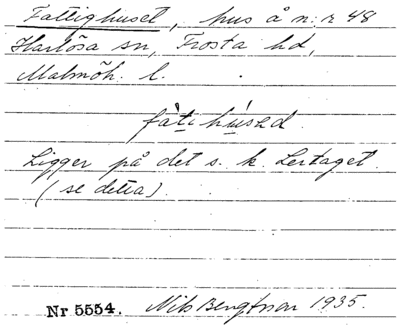 Fattighuset, hus å n:r 48
Harlösa sn, Frosta hd,
Malmöh. l.
fàti húsəd
Ligger på det s. k. Lertaget.
(se detta).
Nr 5554. Nils Bengtson 1935.